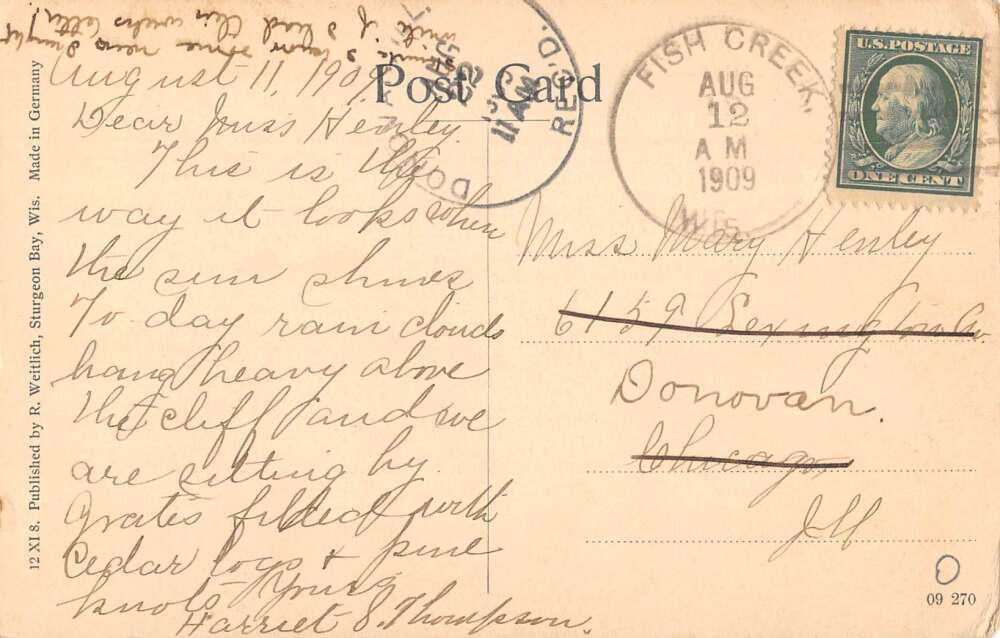 August 11, 1909
Dear Miss Henley
This is the
way it looks when
the sun shines
To day rain clouds
hang heavy above
the cliff and we
are sitting by
grates filled with
Cedar logs & pine
knots Yours
Harriet S. Thompson.
Post Card
REC'D.
11 AM
FISH CREEK,
AUG
12
A M
1909
WIS.
U.S. POSTAGE
ONE CENT
Miss Mary Henley
6159 Lexington Av.
Donovan.
Chicago
Ill
09 270
12 XI 8. Published by R. Weitlich, Sturgeon Bay, Wis. Made in Germany